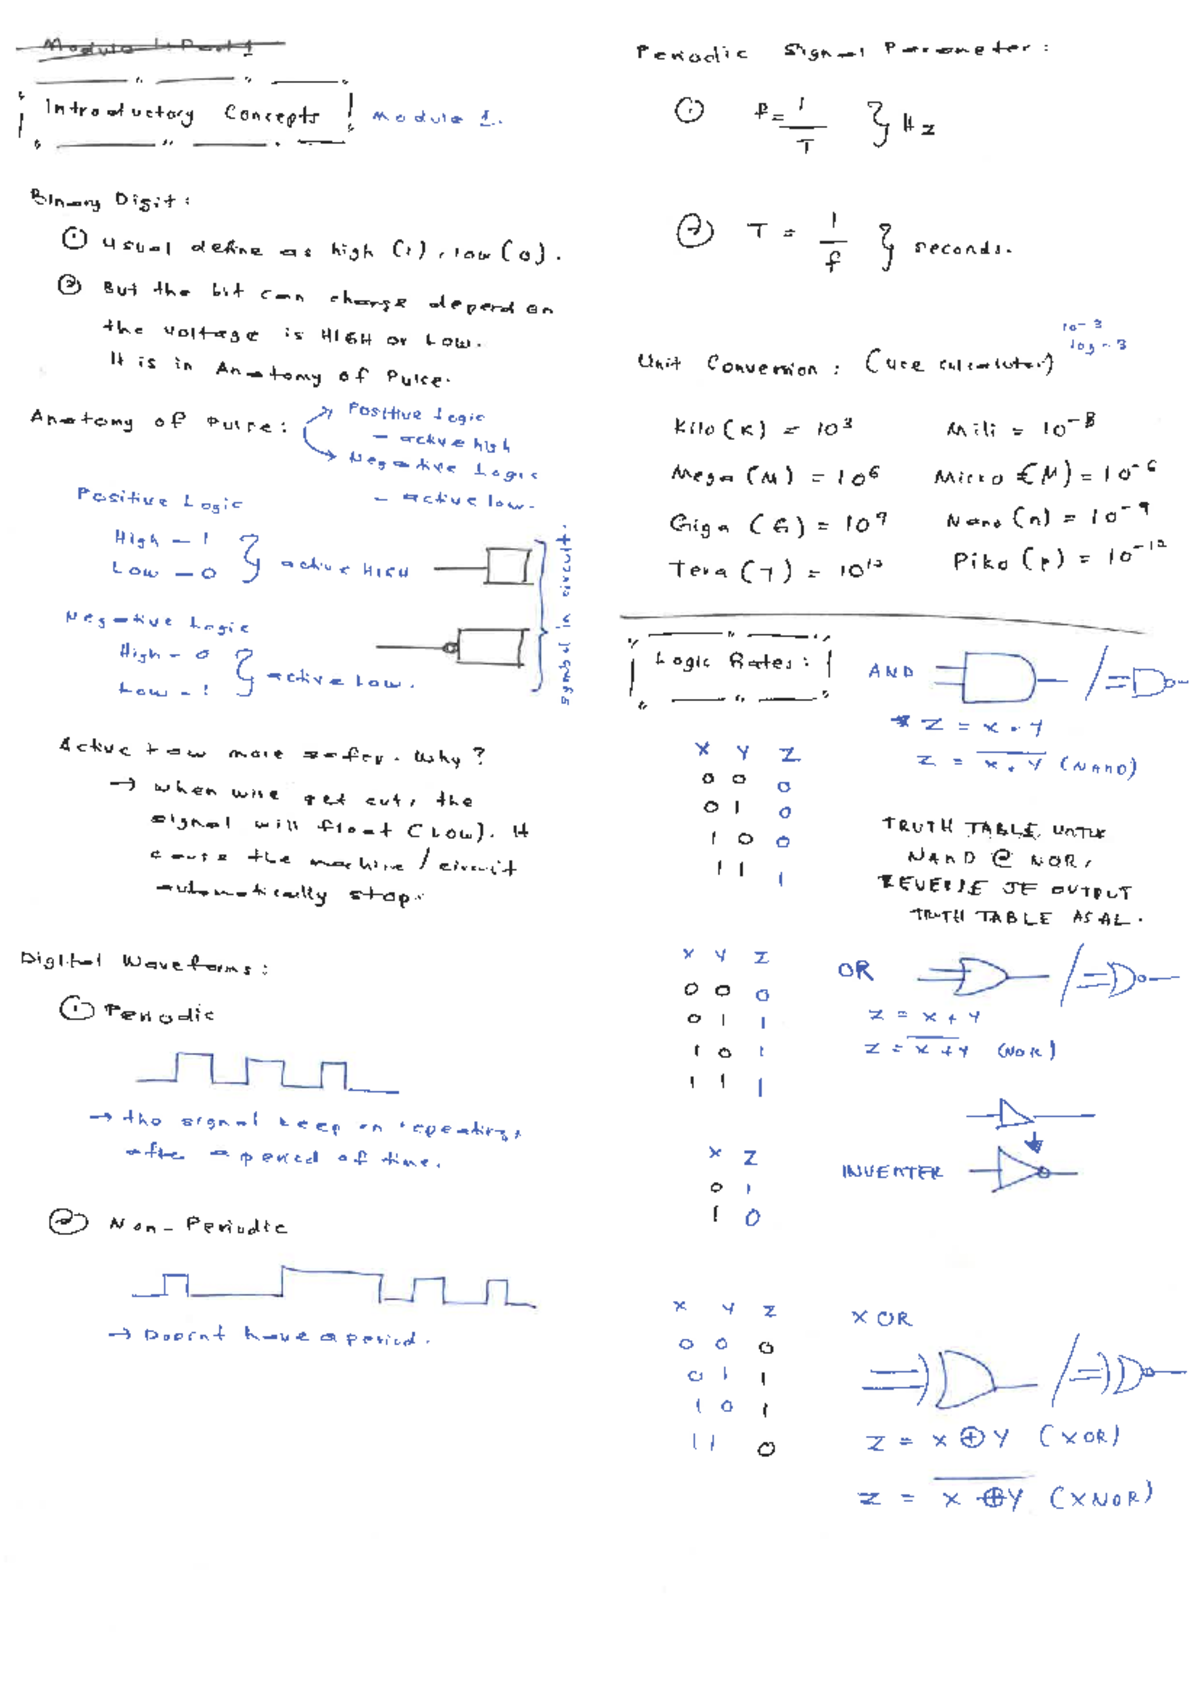 Module 1: Part 1
Introductory Concepts
Module 1.
Binary Digit:
① Usual define as high (1), low (0).
② But the bit can change depend on
the voltage is HIGH or Low.
It is in Anatomy of Pulse.
Anatomy of Pulse:
Positive Logic
- active high
Negative Logic
- active low.
Positive Logic
High - 1
Low - 0
active HIGH
Negative Logic
High - 0
Low - 1
active Low.
symbol in circuit.
Active Low more safer. Why?
→ when wire get cut, the
signal will float (Low). It
cause the machine / circuit
automatically stop.
Digital Waveforms:
① Periodic
→ the signal keep on repeating,
after a period of time.
② Non-Periodic
→ Doesnt have a period.
Periodic Signal Parameter:
① f = 1/T } Hz
② T = 1/f } seconds.
10-3
log-3
Unit Conversion: (use calculator)
Kilo (K) = 10³
Mili = 10⁻³
Mega (M) = 10⁶
Micro (M) = 10⁻⁶
Giga (G) = 10⁹
Nano (n) = 10⁻⁹
Tera (T) = 10¹²
Piko (p) = 10⁻¹²
Logic Rates:
AND
* Z = X . Y
Z = \overline{X . Y} (NAND)
X Y Z
0 0 0
0 1 0
1 0 0
1 1 1
TRUTH TABLE UNTUK
NAND @ NOR,
REVERSE JE OUTPUT
TRUTH TABLE ASAL.
X Y Z
0 0 0
0 1 1
1 0 1
1 1 1
OR
Z = X + Y
Z = \overline{X + Y} (NOR)
X Z
0 1
1 0
INVERTER
X Y Z
0 0 0
0 1 1
1 0 1
1 1 0
XOR
Z = X ⊕ Y (XOR)
Z = \overline{X ⊕ Y} (XNOR)